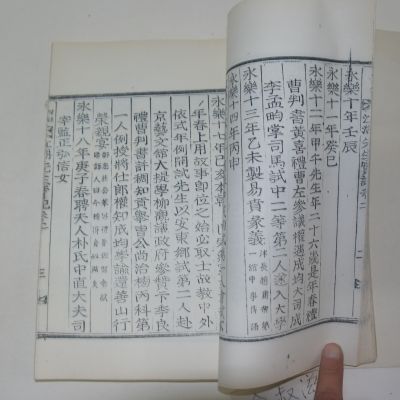 永樂十年壬辰
永樂十一年癸巳
永樂十二年甲午先生年二十六歲是年春禮
曹判書黃喜禮曹左參議權遇成均大司成
李孟畇掌司馬試中二等第二人遂入大學
永樂十三年乙未製易賁象義
永樂十四年丙申
永樂十七年己亥
年春上用故事卽位之始必取士故敎中外
依式年例同試先生以安東鄕試第二人赴
京藝文館大提學柳觀議政府參贊卞季良
禮曹判書許稠知貢擧曹公尙治榜丙科第
一人例授將仕郞權知成均學諭還善山行
榮親宴
永樂十八年庚子春聘夫人朴氏中直大夫司
宰監正弘信女
三